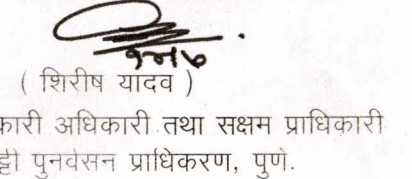 ( शिरीष यादव )
कारी अधिकारी तथा सक्षम प्राधिकारी
ट्टी पुनर्वसन प्राधिकरण, पुणे.